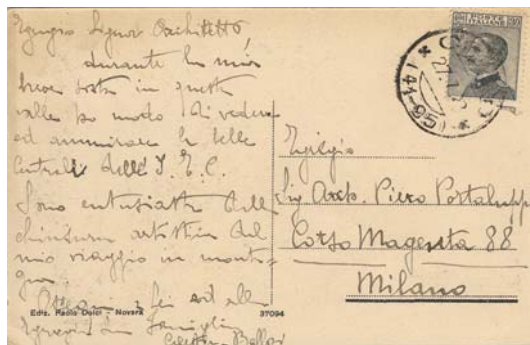 Egregio Signor Architetto,
durante la mia
breve sosta in questa
valle ho modo di vedere
ed ammirare le belle
Centrali dell'I. E. C.
Sono entusiasta della
chiusura artistica del
mio viaggio in monta-
gna.
a Lei ed alla
Famiglia
Ediz. Paolo Dolci - Novara
37094
Egregio
Sig. Arch. Piero Portaluppi
Corso Magenta 88
Milano